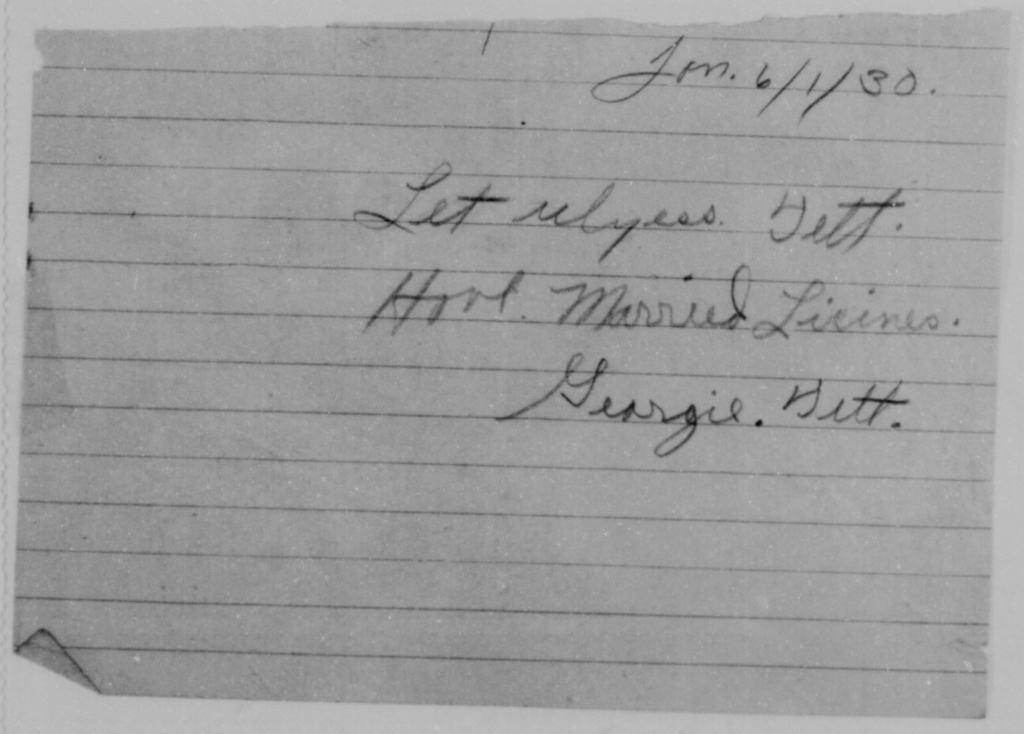 Jan. 6/1/30.
Let ulyess. Tett.
Hool. Married Licines.
Georgie. Tett.